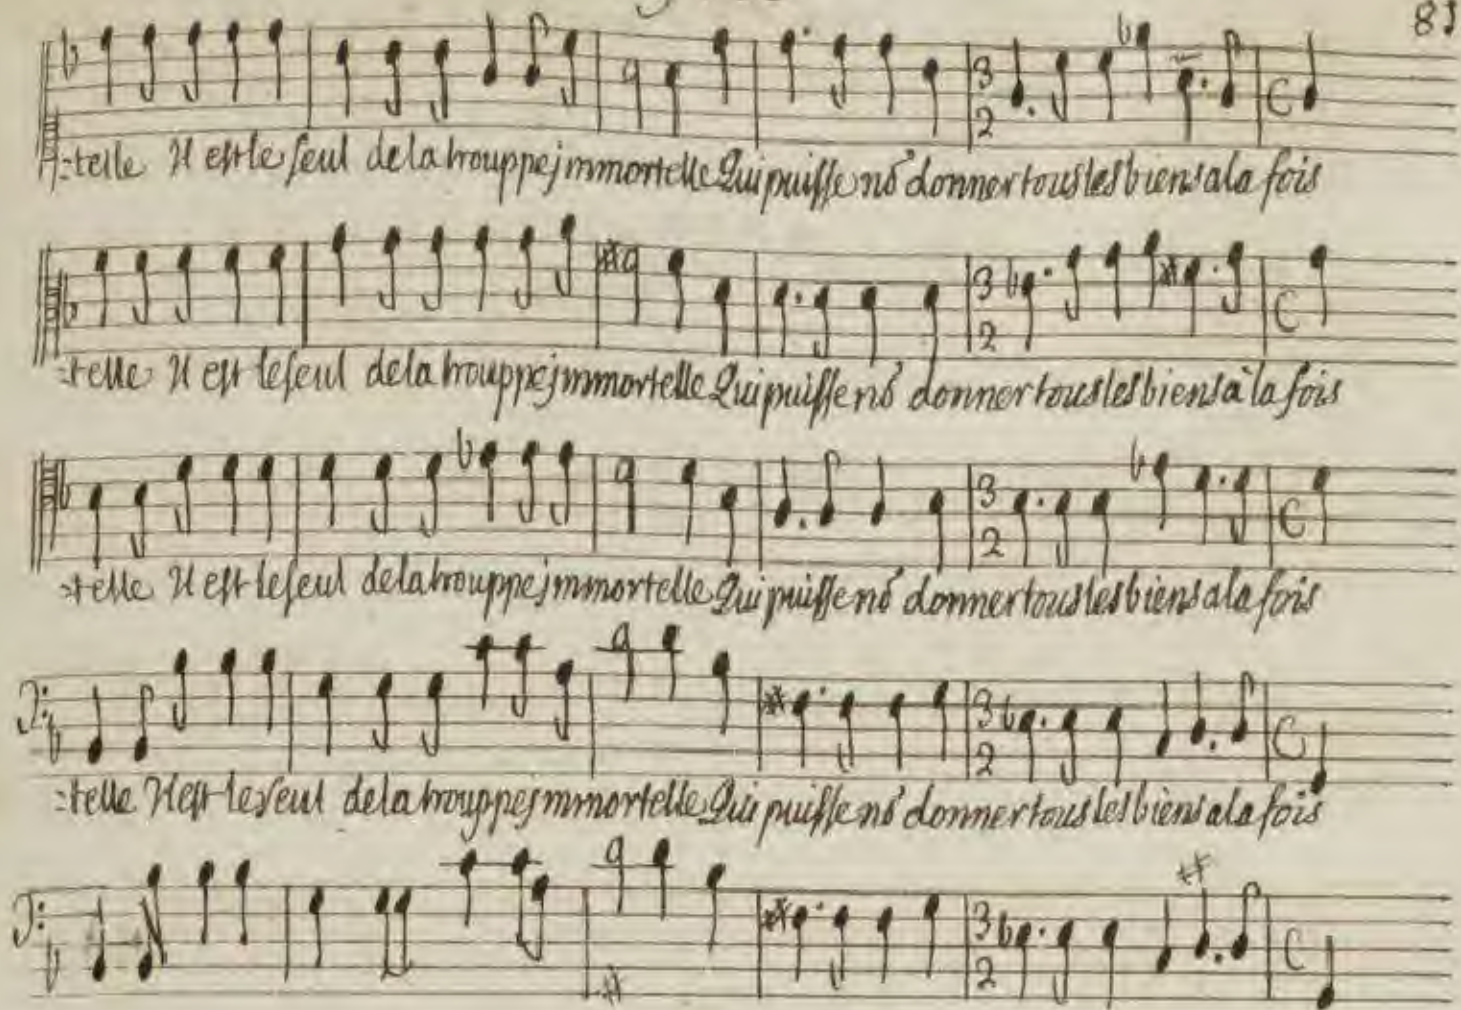 =telle Il est le seul de la trouppe jmmortelle Qui puisse nõ donner tous les biens a la fois
=telle Il est le seul de la trouppe jmmortelle Qui puisse nõ donner tous les biens à la fois
=telle Il est le seul de la trouppe jmmortelle Qui puisse nõ donner tous les biens a la fois
=telle Il est le seul de la trouppe jmmortelle Qui puisse nõ donner tous les biens a la fois